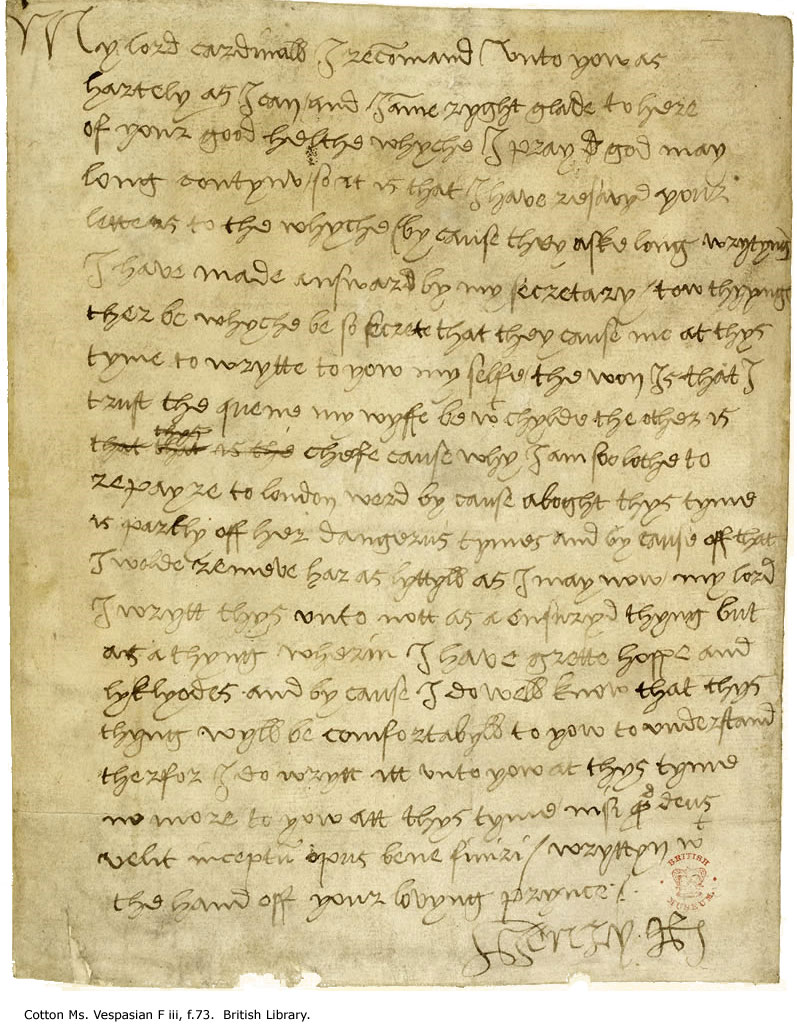 My lord cardinall I recomand unto yow as
hartely as I can / and I ame ryght glade to here
of your good helthe whyche I pray god may
long contynw / so it is that I have resayvyd your
letters to the whyche (by cause they aske long wrytyng)
I have made answard by my secretary / tow thyngs
ther be whyche be so secrete that they cause me at thys
tyme to wrytte to yow my selfe / the won Is that I
trust the quene my wyffe be wt chylde the other is
that thys is the chefe cause why I am soo lothe to
repayre to london werd by cause aboght thys tyme
is partly off her dangerus tymes and by cause off that
I wolde remeve har as lyttyll as I may now / my lord
I wrytt thys unto nott as a ensuryd thyng but
as a thyng wherin I have grette hoppe and
lyklyodes and by cause I do well know that thys
thyng wyll be comfortabyll to yow to understand
therfor I do wrytt itt unto yow at thys tyme
no more to yow att thys tyme nisi qd deus
velit inceptu opus bene finiri / wryttyn wt
the hand off your lovyng prynce /.
Henry R
BRITISH MUSEUM
Cotton Ms. Vespasian F iii, f.73. British Library.